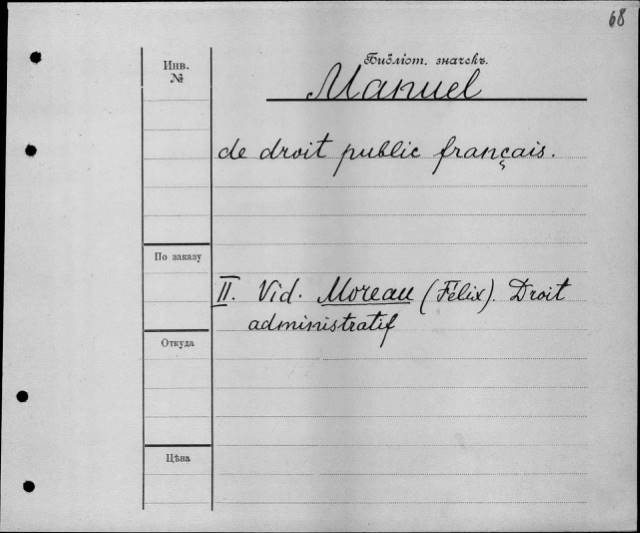 68
Инв.
№
Библіот. значокъ.
Manuel
de droit public français.
По заказу
II. Vid. Moreau (Félix). Droit
administratif
Откуда
Цѣна